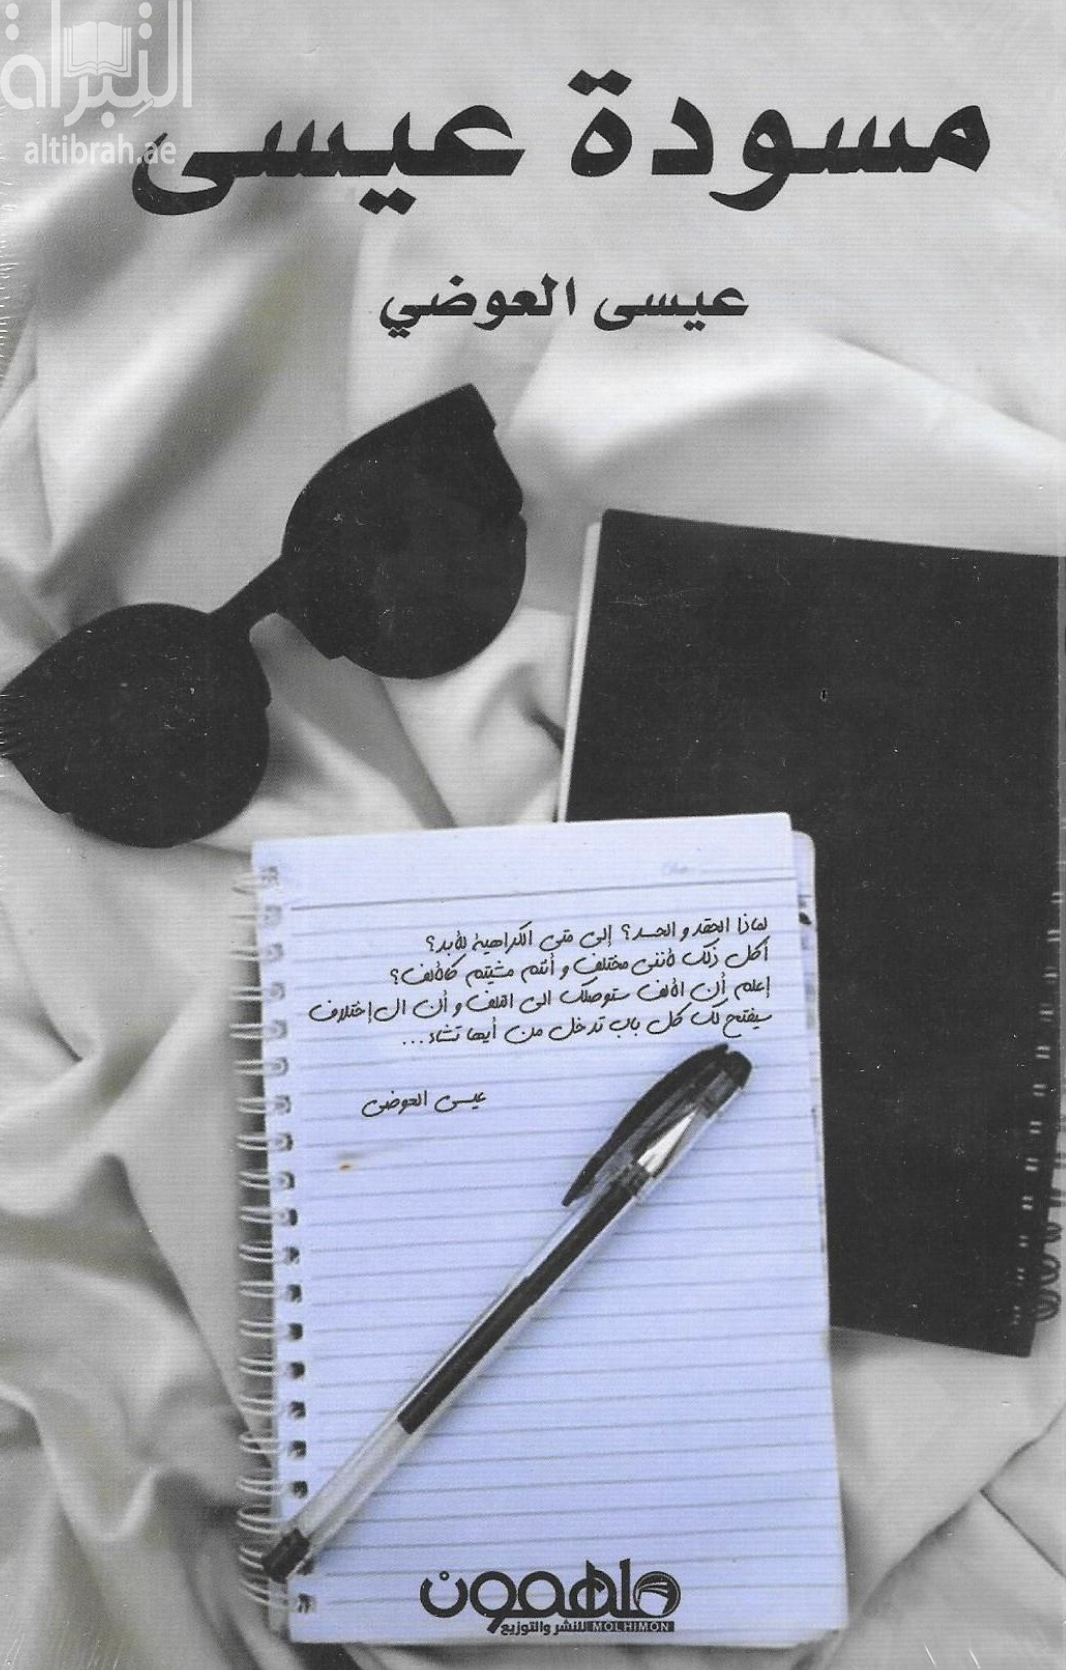 التبراة
altibrah.ae
مسودة عيسى
عيسى العوضي
لماذا الحقد و الحسد؟ إلى متى الكراهية للأبد؟
أكل ذلك لأنني مختلف و أنتم مشيتم كالألف؟
إعلم أن الألف ستوصلك الى التلف و أن ال إختلاف
سيفتح لك كل باب تدخل من أيها تشاء...
عيسى العوضي
ملهمون
للنشر والتوزيع MOLHIMON